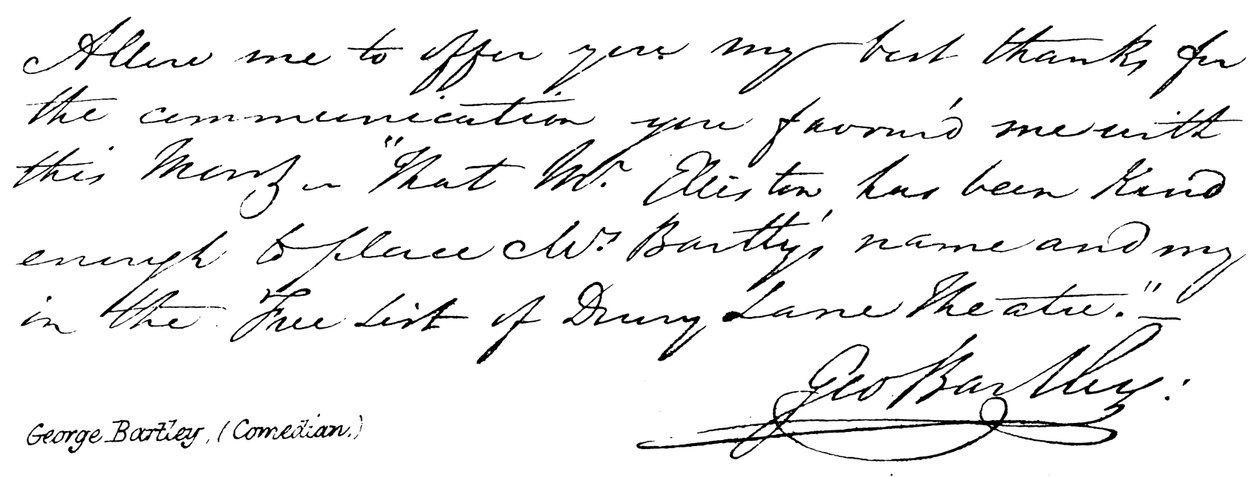 Allow me to offer you my best thanks for
the communication you favour'd me with
this Morng — "That Mr. Elliston has been Kind
enough to place Mrs Bartley's name and my
in the Free List of Drury Lane Theatre."—
Geo Bartley:
George Bartley, (Comedian.)